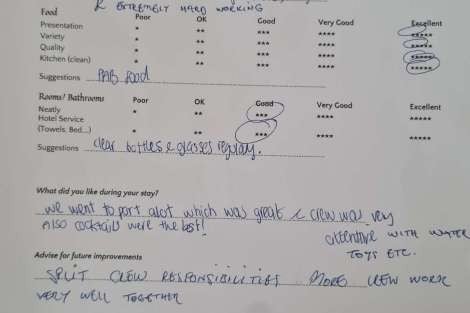 & EXTREMELY HARD WORKING
Food Poor OK Good Very Good Excellent
Presentation * ** *** **** *****
Variety * ** *** **** *****
Quality * ** *** **** *****
Kitchen (clean) * ** *** **** *****
Suggestions FAB food
Rooms/ Bathrooms Poor OK Good Very Good Excellent
Neatly * ** *** **** *****
Hotel Service
(Towels, Bed...) * ** *** **** *****
Suggestions clear bottles & glasses regulary.
What did you like during your stay?
we went to port alot which was great & crew was very
Also cocktails were the best! attentive WITH WATER
TOYS ETC.
Advise for future improvements
SPLIT CREW RESPONSIBILITIES MORE CREW WORK
VERY WELL TOGETHER